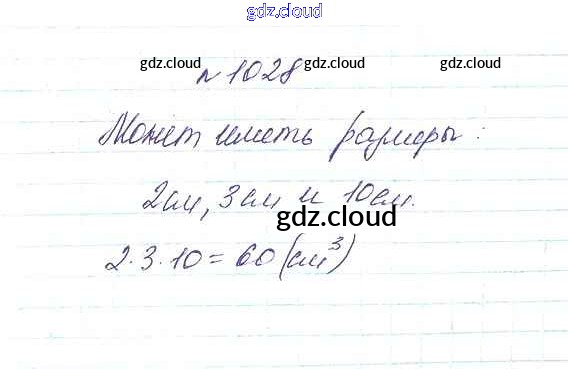 gdz.cloud
gdz.cloud
№ 1028
gdz.cloud gdz.cloud gdz.cloud
Может иметь размеры:
2см, 3см и 10см.
gdz.cloud
2·3·10=60(см³)